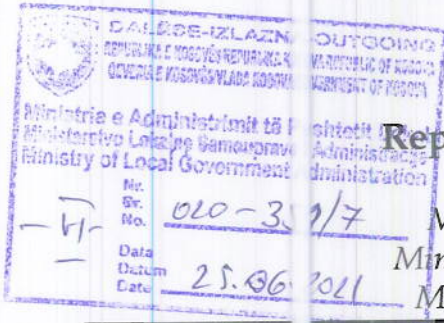 DALËSE-IZLAZNA-OUTGOING
REPUBLIKA E KOSOVËS/REPUBLIKA KOSOVA/REPUBLIC OF KOSOVO
QEVERIA E KOSOVËS/VLADA KOSOVA/GOVERNMENT OF KOSOVA
Ministria e Administrimit të Pushtetit
Ministarstvo Lokalne Samouprave Administracije
Ministry of Local Government Administration
Rep
Nr.
Br.
No. 020-3 /7
-VI-
M
Min
M
Data
Datum
Date 25.06.2021